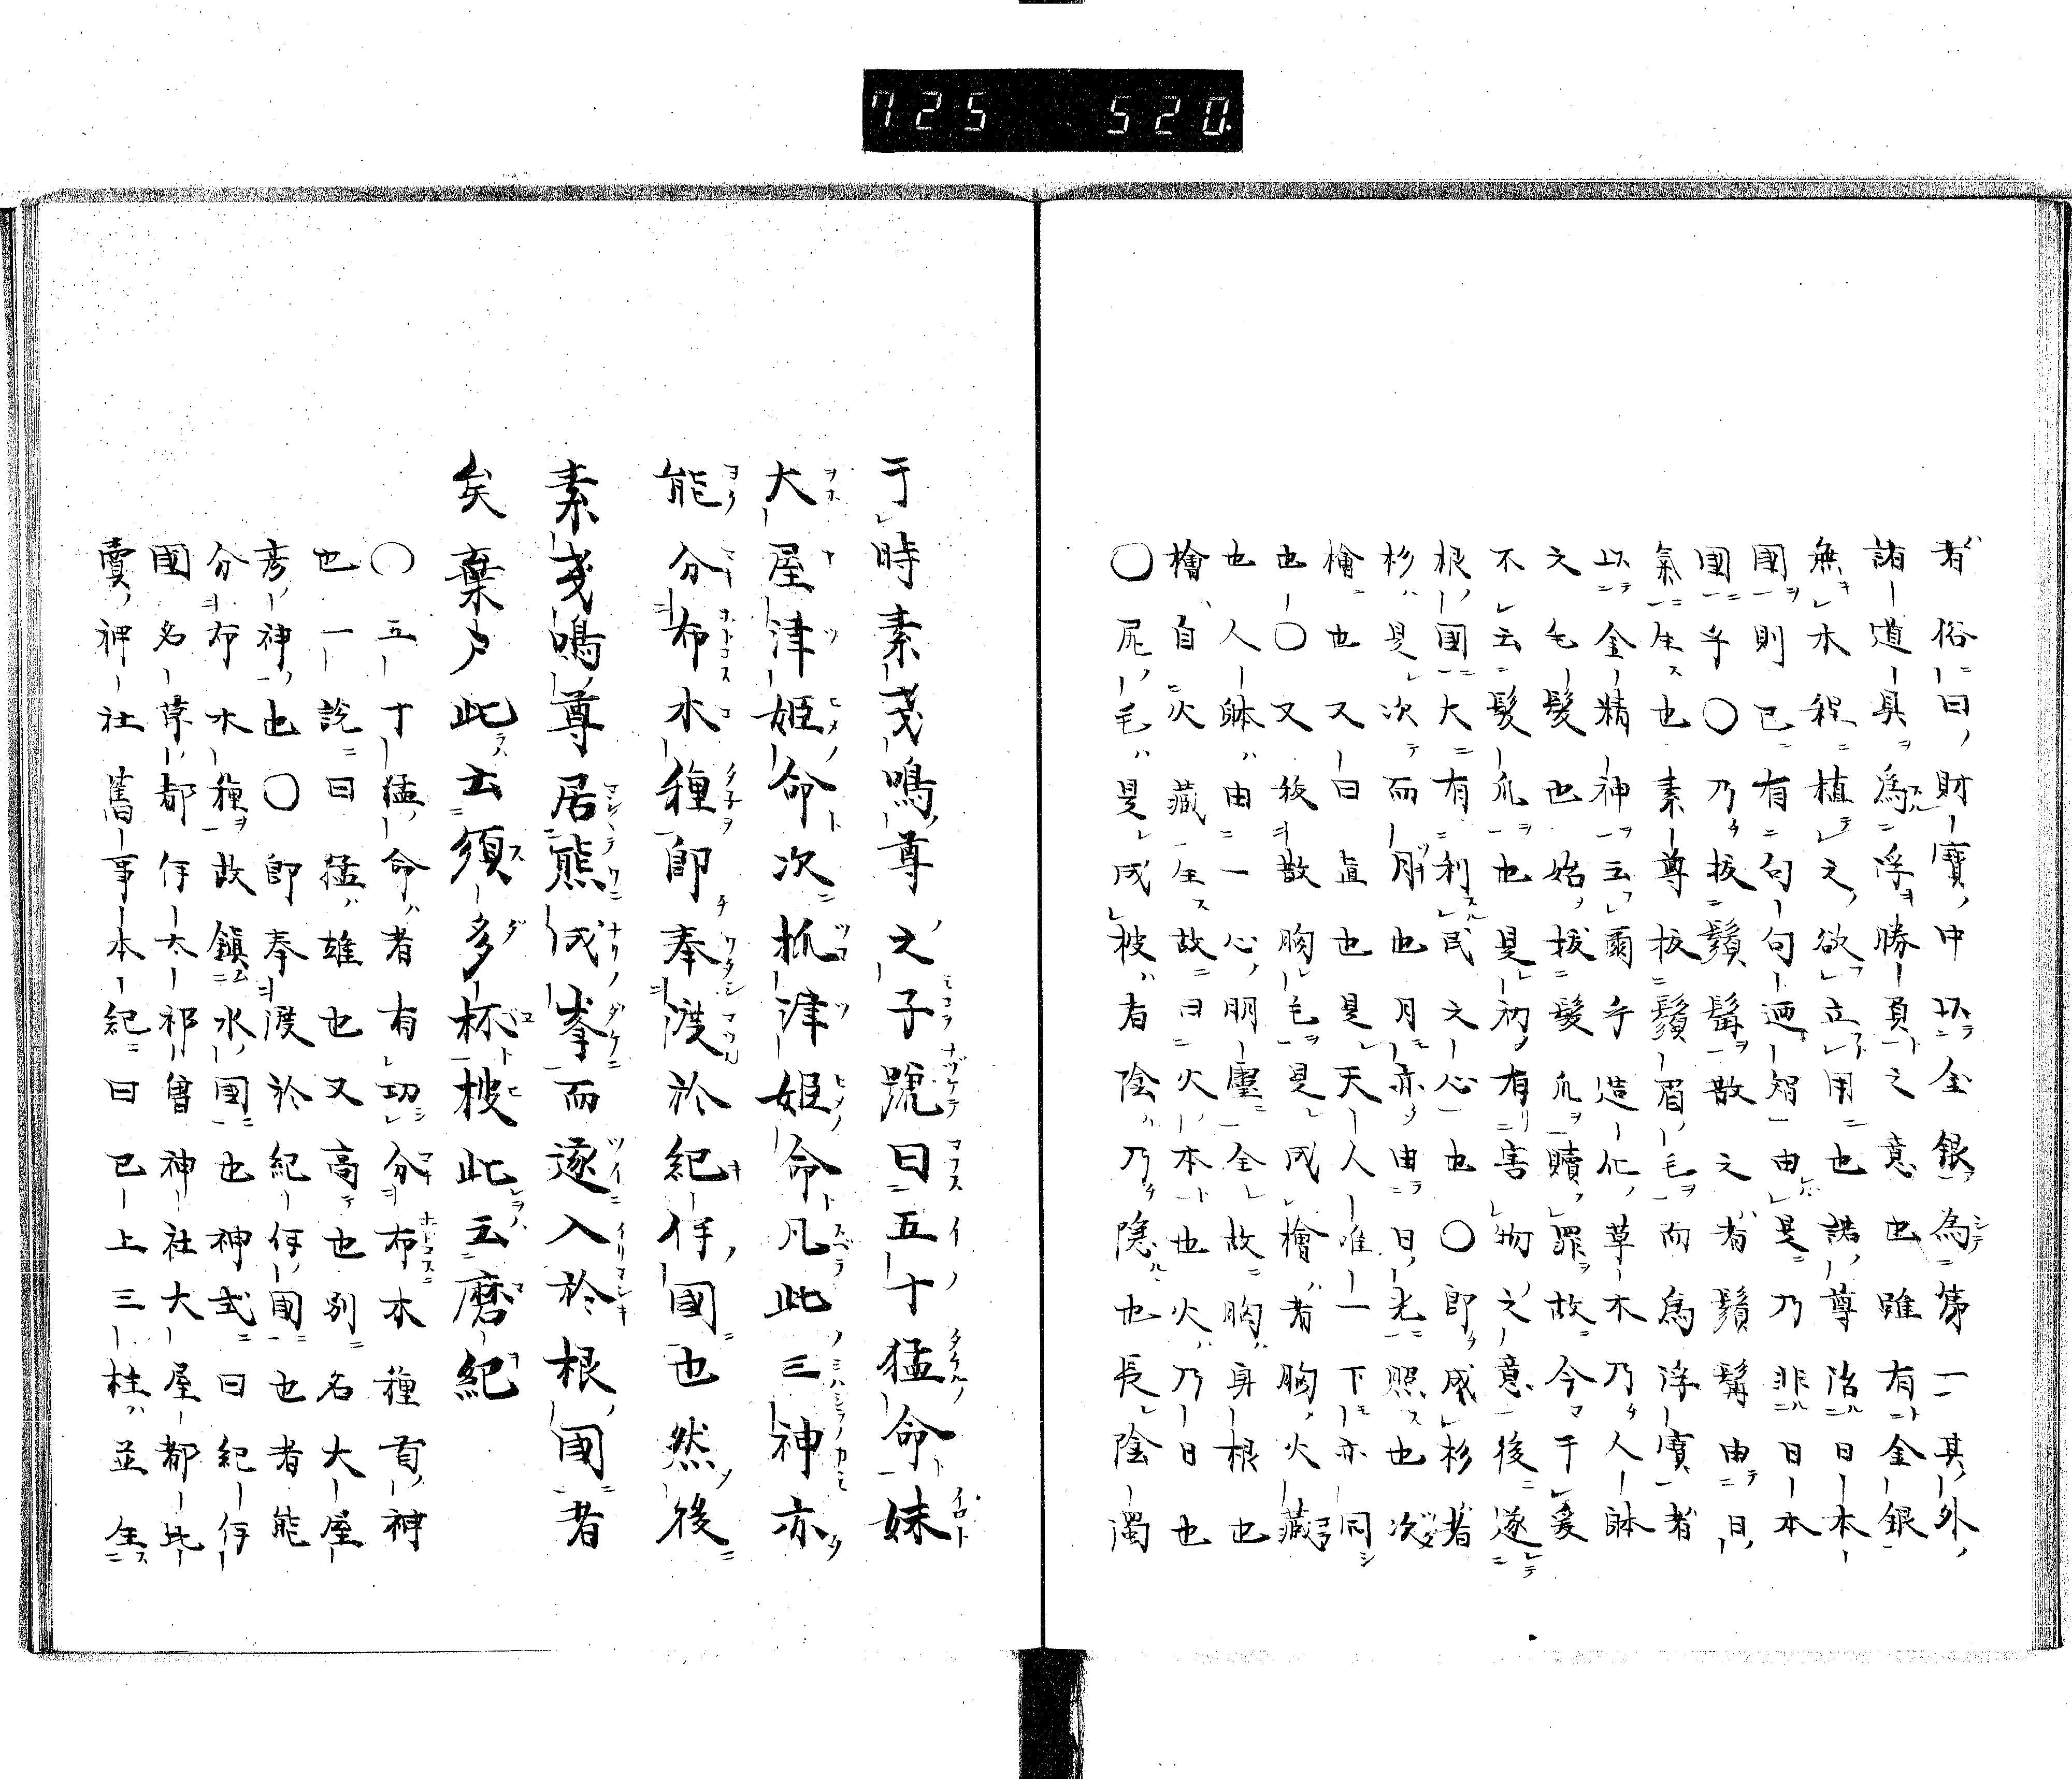 725 520
者俗曰財寶中以金銀為第一其外
諸道具為浮勝負之意也雖有金銀
無木程植之欲立用也諾尊治日本
國則已有句句廼智由是乃非日本
國乎〇乃拔鬚髯散之者鬚髯由日
氣生也素尊拔鬚眉毛而為浮寶者
以金精神云爾乎造化草木乃人躰
之毛髮也始拔髮爪贖罪故今于爰
不云髮爪也是初有害物之意後遂
根國大有利民之心也〇即成杉者
杉是次而胖也月亦由日光照也次
檜也又曰直也是天人唯一下亦同
也〇又拔散胸毛是成檜者胸火藏
也人躰由一心明靈全故胸身根也
檜自火藏生故曰火本也火乃日也
〇尻毛是成柀者陰乃隱也長陰濁
于時素戔鳴尊之子號曰五十猛命妹
大屋津姬命次抓津姬命凡此三神亦
能分布木種即奉渡於紀伊國也然後
素戔鳴尊居熊成峯而遂入於根國者
矣棄戶此云須多杯柀此云磨紀
〇五十猛命者有功分布木種首神
也一說曰猛雄也又高也別名大屋
彥神也〇即奉渡於紀伊國也者能
分布木種故鎮水國也神式曰紀伊
國名草都伊太祁曾神社大屋都比
賣神社舊事本紀曰已上三柱並生